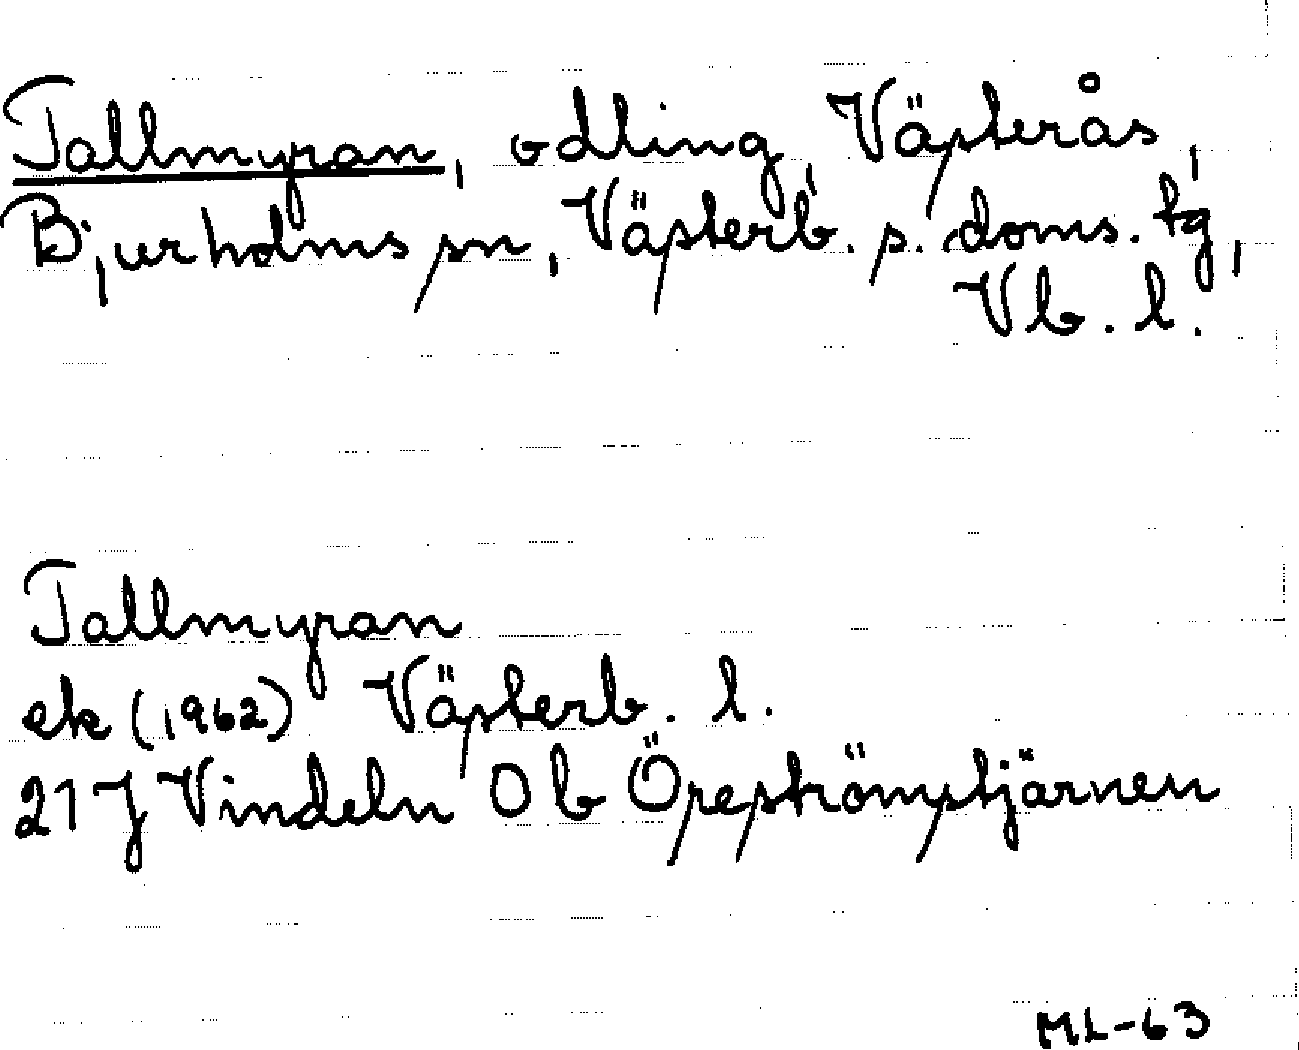 Tallmyran, odling, Västerås,
Bjurholms sn, Västerb. s. doms. tg,
Vb. l.
Tallmyran
ek (1962) Västerb. l.
21 J Vindeln 0 b Öreströmstjärnen
ML-63